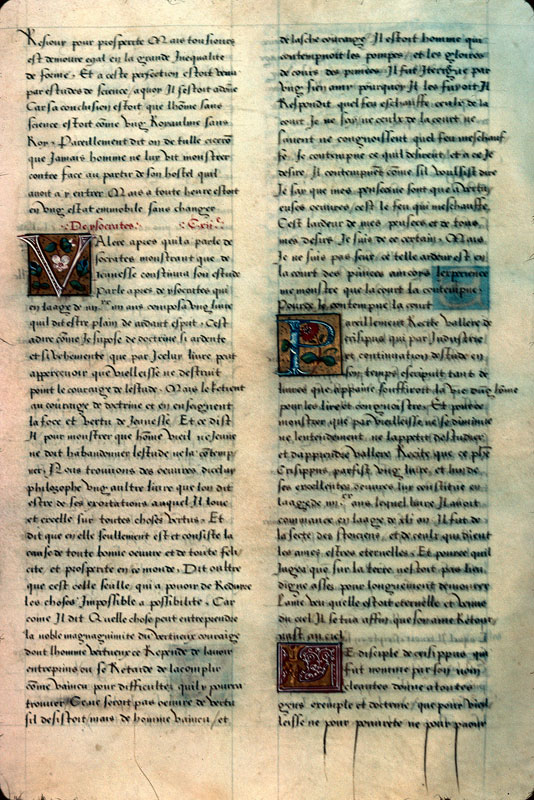 Resiour pour prosperite Mais tousiours
est demoure egal en la grande Inequalite
de fortune. Et a ceste perfection estoit venu
par estudes de science, a quoy Il sestoit adone
Car sa conclusion estoit que lhome sans
science estoit cõme vng Royaulme sans
Roy. Pareillement dit on de tulle ciceron
que Jamais homme ne luy vit monstrer
contre face au partir de son hostel qui
auoit a y entrer Mais a toute heure estoit
en vng estat immobile sans changer
De ysocrates. C.xii.
Valere apres quil a parle de
socrates monstrant que de
Jeunesse continua son estude
Parle apres de ysocrates qui
en laage de iiii xx xiiii ans composa vng liure
qui dit estre plain de ardant esprit. Cest
adire cõme Je supose de doctrine si ardente
et si vehemente que par Jceluy liure peut
apperceuoir que vieillesse ne destruit
point le couraige de lestude. Mais le Retient
au couraige de doctrine et en enseignent
la force et vertu de Jeunesse. Et ce dist
Il pour monstrer que hõme vieil ne Jeune
ne doit habandonner lestude ne la contemp
ner. Nous trouuons des oeuures diceluy
philozophe vng aultre liure que lon dit
estre de ses exortations auquel Il loue
et excelle sur toutes choses vertus. Et
dit que en elle seullement est et consiste la
cause de toute bonne oeuure et de toute feli
cite, et prosperite en ce monde. Dit oultre
que cest celle seulle, qui a pouoir de Reduire
les choses Impossible a possibilite. Car
come Il dit Quelle chose peut entreprendre
la noble magnanimite du vertueux couraige
dont lhomme vertueux ce Repende de lauoir
entreprins ou se Retarde de lacomplir
cõme vaincu pour difficultez quil y pourra
trouuer, Ce ne seroit pas oeuure de vertu
sil desistoit, mais de homme vaincu, et
de lasche couraige. Il estoit homme qui
contempnoit les pompes, et les gloires
de cours des princes. Il fut Iterrogue par
vng sien amy pourquoy Il les fuyoit Il
Respondit quel feu eschauffe ceulx de la
court Je ne scay ne ceulx de la court ne
sauent ne congnoissent quel feu meschauf
fe. Je contempne ce quil desirent et a ce Je
desire. Il contempnent cõme sil voulsist dire
Je say que mes pensees ne sont que a vertu
euses oeuures, cest le feu qui meschauffe.
Cest lardeur de mes pensees et de tous
mes desirs Je suis de ce certain. Mais
Je ne suis pas seur, ce telle ardeur est en
la court des princes aincoys lexperience
me monstre que la court la contempne.
Pource Je contempne la court
Pareillement Recite vallere de
crisipus qui par Industrie
et continuation destude en
son temps escriput tant de
liures que appaine souffiroit la vie dung hõme
pour les lire et congnoistre. Et pour de
monstrer que par vieillesse ne se diminue
ne lentendement, ne lappetit destudier
et dapprendre vallere Recite que ce phe
Crisippus parfist vng liure, et lun de
ses excellentes oeuures lui constitue en
laage de iiii xx ans lequel liure Il auoit
commance en laage de xli an Il fut de
la secte des stoiciens, et de ceulx qui dient
les ames estres eternelles. Et pource quil
Jugea que sur la terre nestoit pas lieu
digne asses pour longuement demourer
lame veu quelle estoit eternelle et venue
du ciel Il se tua affin que son ame Retour
nast au ciel
Le disciple de crisippus qui
fut nomme par son nom
cleantes donne a toutes
gens exemple et doctrine, que pour vieil
leisse ne pour pourete ne pour paour